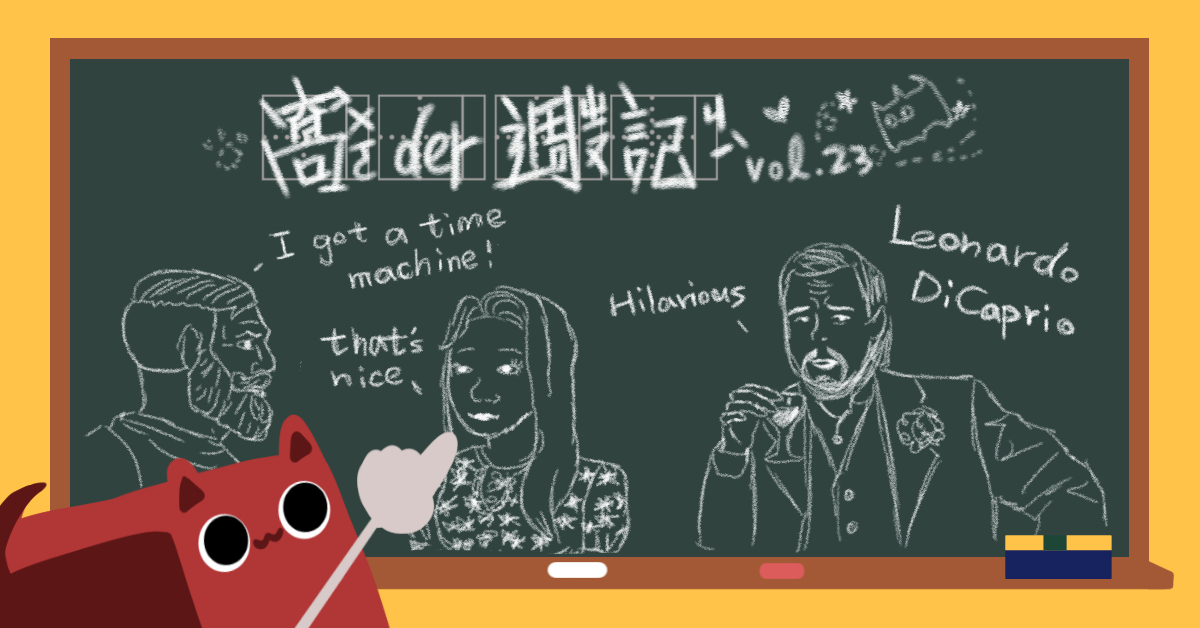 窩ㄨㄛ der 週ㄓㄡ 記ㄐㄧˋ vol.23
I got a time
machine!
that's
nice
Hilarious
Leonardo
DiCaprio